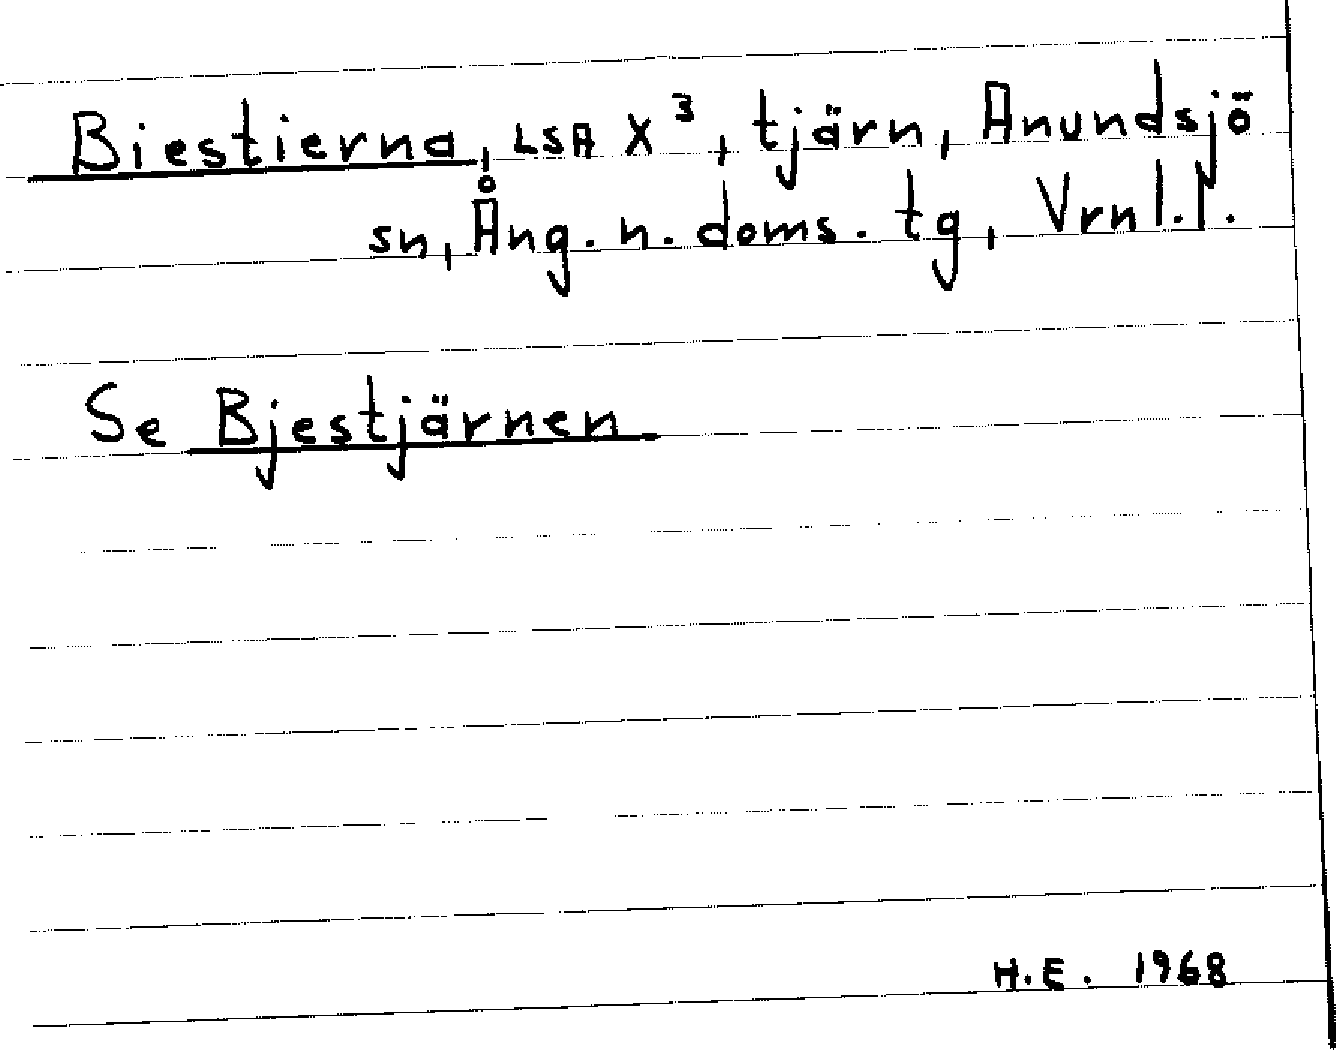 Biestierna, LSA X³, tjärn, Anundsjö
sn, Ång. n. doms. tg, Vrnl. l.
Se Bjestjärnen
H.E. 1968